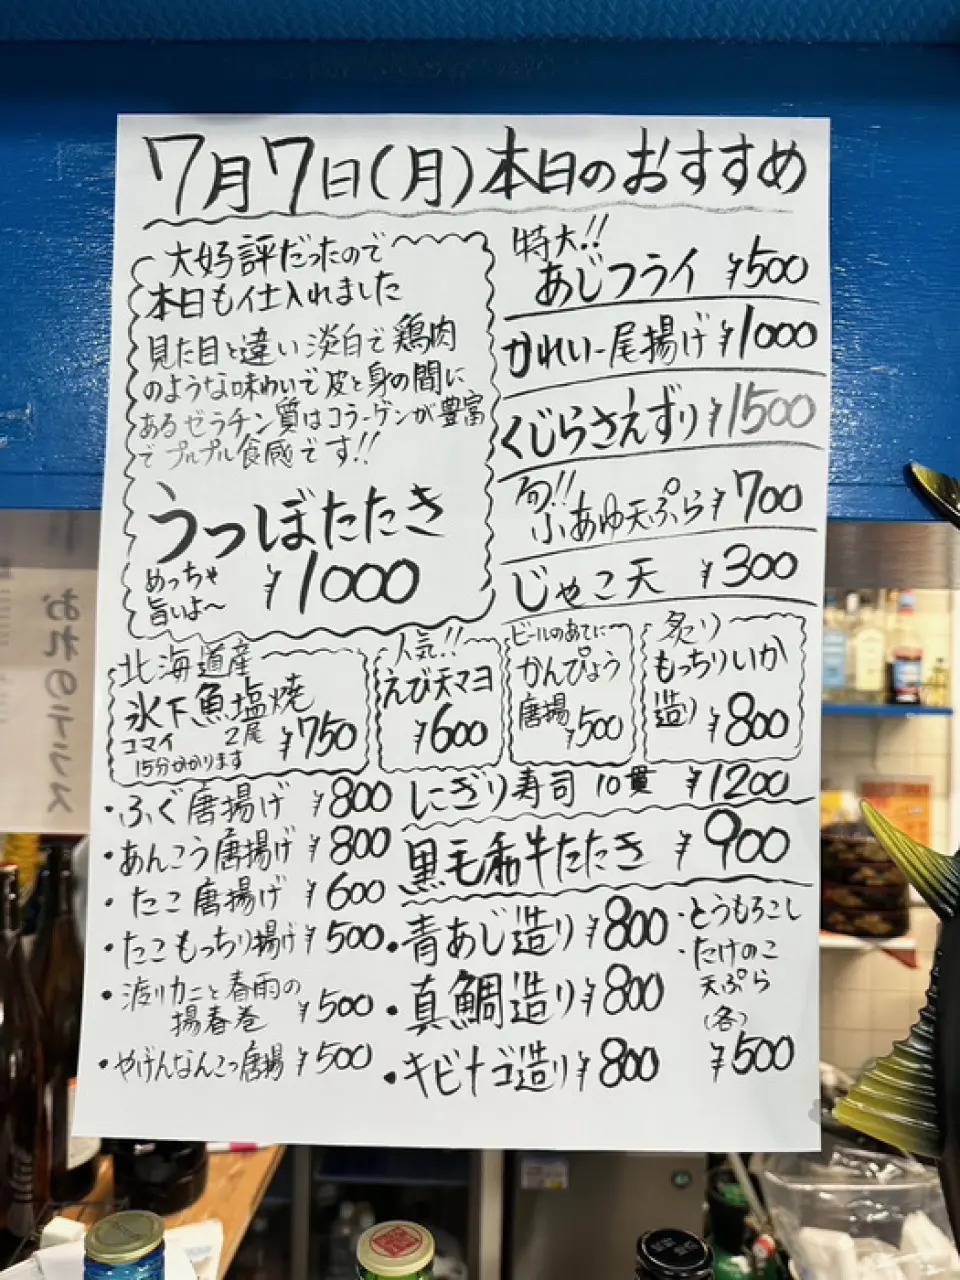 7月7日(月)本日のおすすめ
大好評だったので
本日も仕入れました
見た目と違い淡白で鶏肉
のような味わいで皮と身の間に
あるゼラチン質はコラーゲンが豊富
でプルプル食感です!!
うつぼたたき
めっちゃ
旨いよ〜
¥1000
特大!!
あじフライ ¥500
かれい一尾揚げ ¥1000
くじらさえずり ¥1500
旬!!
小あゆ天ぷら ¥700
じゃこ天 ¥300
北海道産
氷下魚塩焼
コマイ 2尾 ¥750
15分かかります
人気!!
えび天マヨ
¥600
ビールのあてに
かんぴょう
唐揚
¥500
炙り
もっちりいか
造り ¥800
・ふぐ唐揚げ ¥800
・あんこう唐揚げ ¥800
・たこ唐揚げ ¥600
・たこもっちり揚げ ¥500
・渡りカニと春雨の
揚春巻 ¥500
・やげんなんこつ唐揚 ¥500
にぎり寿司 10貫 ¥1200
黒毛和牛たたき ¥900
・青あじ造り ¥800
・真鯛造り ¥800
・キビナゴ造り ¥800
・とうもろこし
・たけのこ
天ぷら
(各)
¥500
おれのテラス